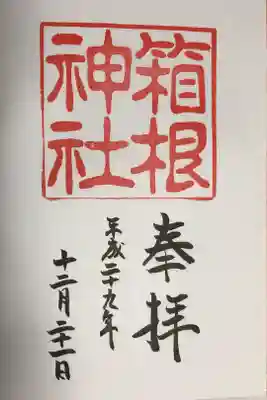 奉拝
箱根
神社
平成二十九年
十二月二十一日